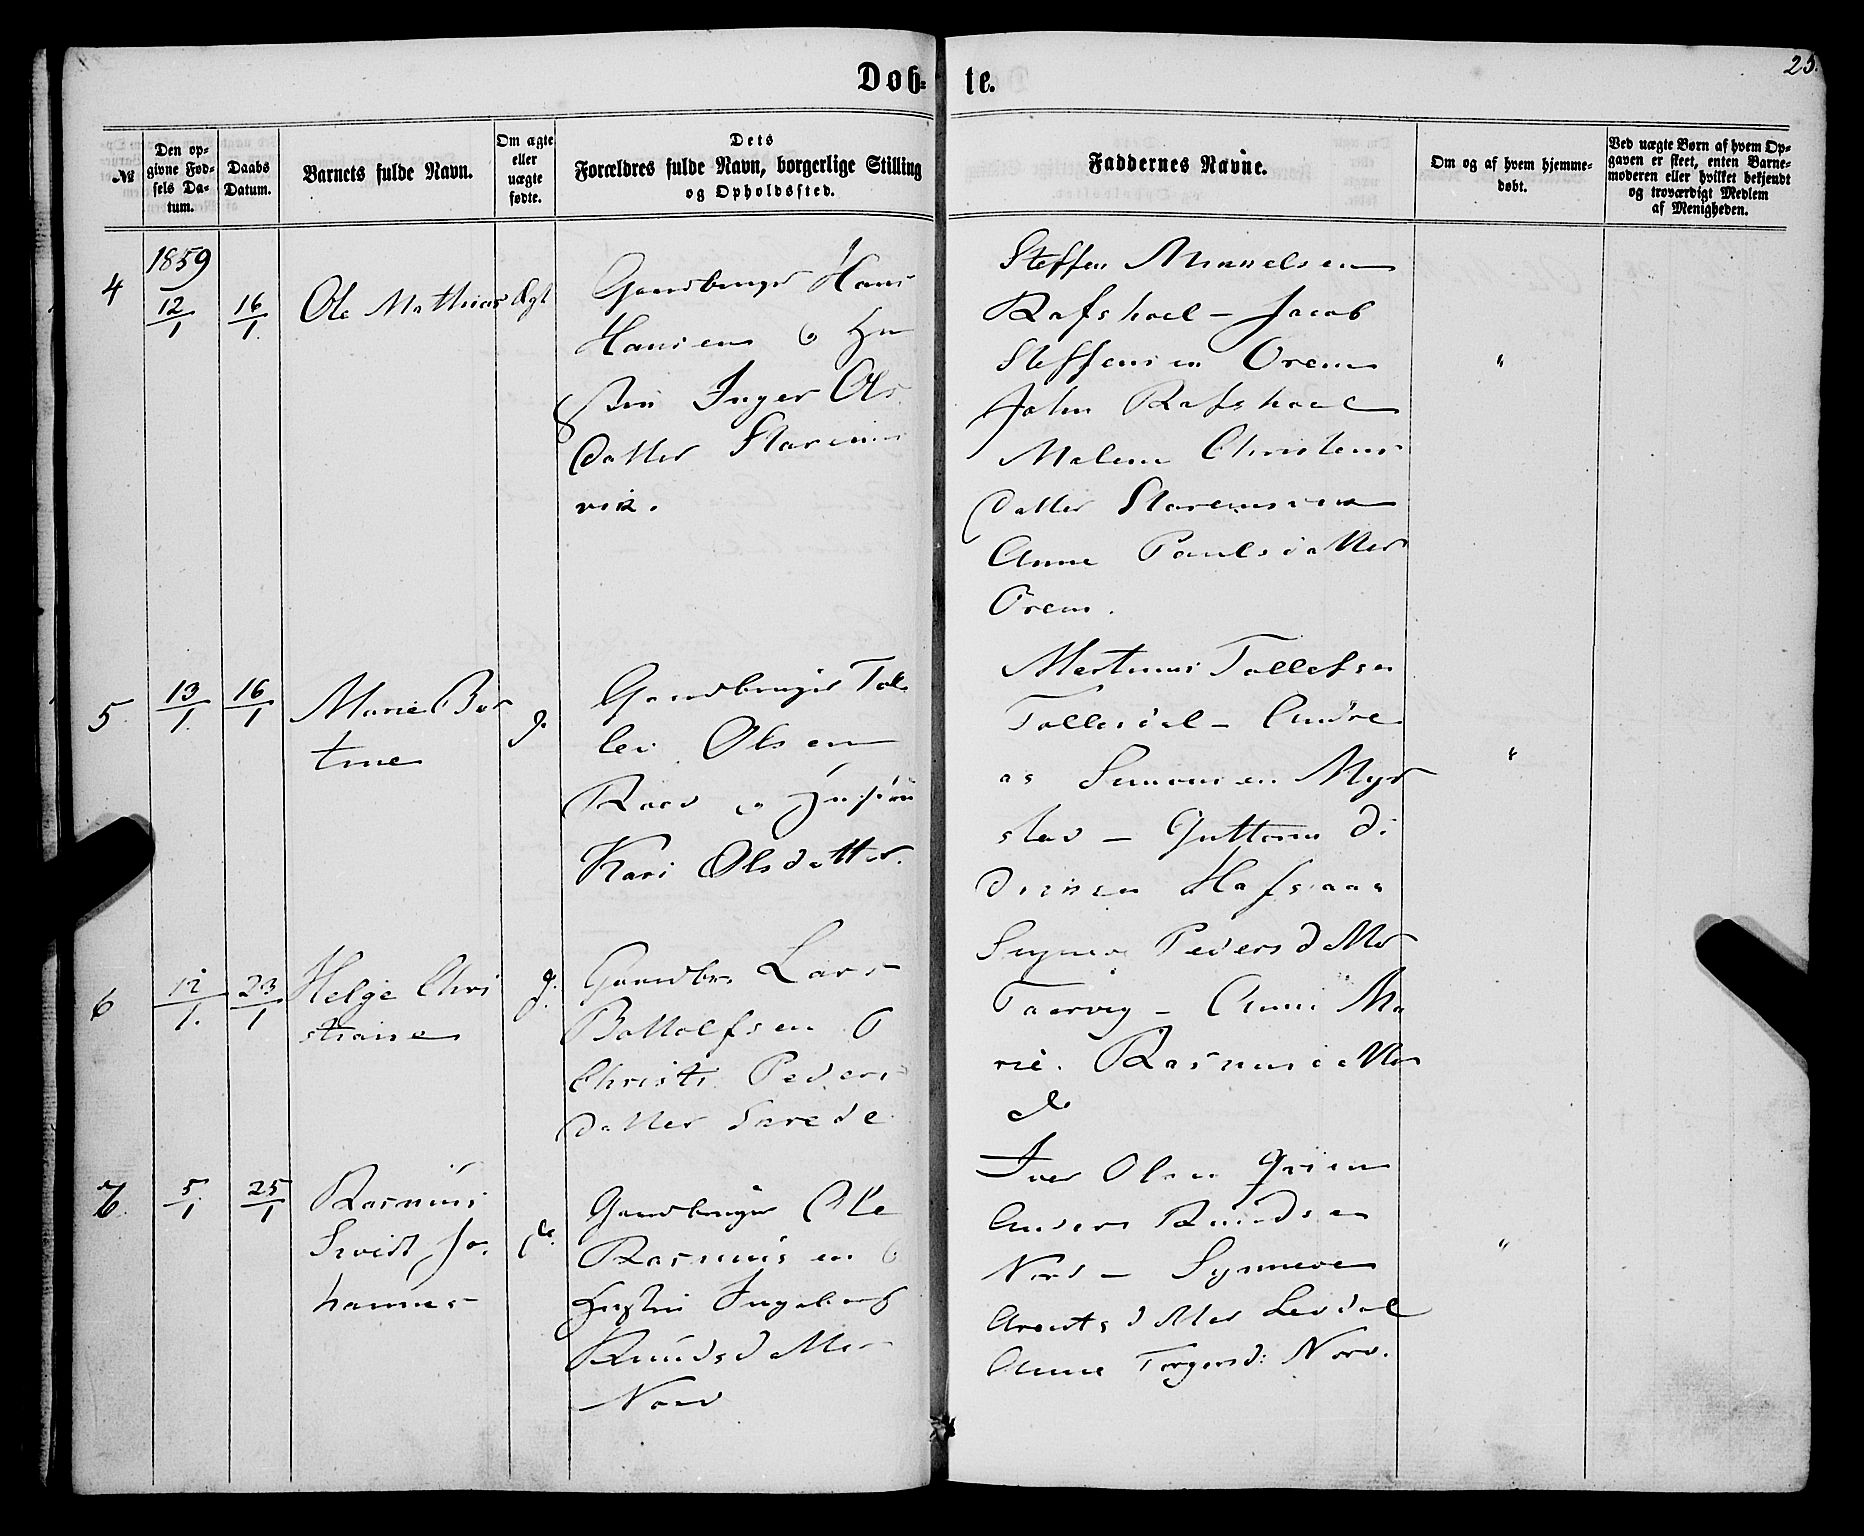 Døb-
te.
25.
№
Den op-
givne Fød-
sels Da-
tum.
Daabs
Datum.
Barnets fulde Navn.
Om ægte
eller
uægte
fødte.
Dets
Forældres fulde Navn, borgerlige Stilling
og Opholdssted.
Faddernes Navne.
Om og af hvem hjemme-
døbt.
Ved uægte Børn af hvem Op-
gaven er skeet, enten Barne-
moderen eller hvilket bekjendt
og troværdigt Medlem
af Menigheden.
1859
4
12/1
16/1
Ole Mathias
Ægt
Gaardbruger Hans
Hansen &
Inger Ols
datter
vik.
Steffen
Refskael - Jacob
Steffensen Orem
John Refskael
Malene Christens
datter
Anne Paulsdatter
Orem.
"
5
13/1
16/1
Marie Ber
tine
d.
Gaardbruger Tol
lev Olsen
& Hustru
Kari Olsdatter.
Martinus Tollefsen
Tollesdal - Andre
as Simonsen
- Guttorm Di
driksen
Pedersdatter
- Anne Ma
rie Rasmusdatter
do
"
6
12/1.
23/1
Helge Chri
stiane
d.
Gaardbr Lars
Bottolfsen &
Christi Peders
datter
7
5/1
25/1
Rasmus
Johannes
do.
Gaardbruger Ole
Rasmussen &
Hustru Ingeborg
Knudsdatter
Nord
Iver Olsen
Anders Knudsen
Nord - Synneve
Arentsdatter
Anne Torgersd: Nord.
"